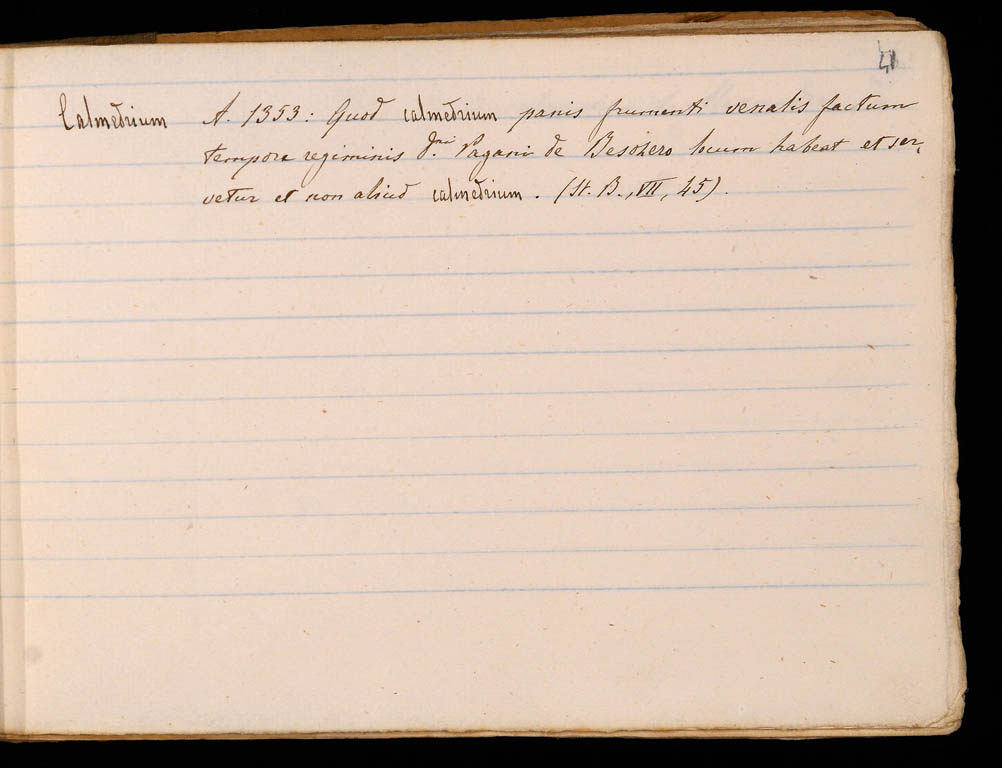 41
Calmedrium A. 1353: Quod calmedrium panis frumenti venalis factum
tempore regiminis d.ni Pagani de Besozero locum habeat et ser,
vetur et non aliud calmedrium. (St. B., VII, 45).